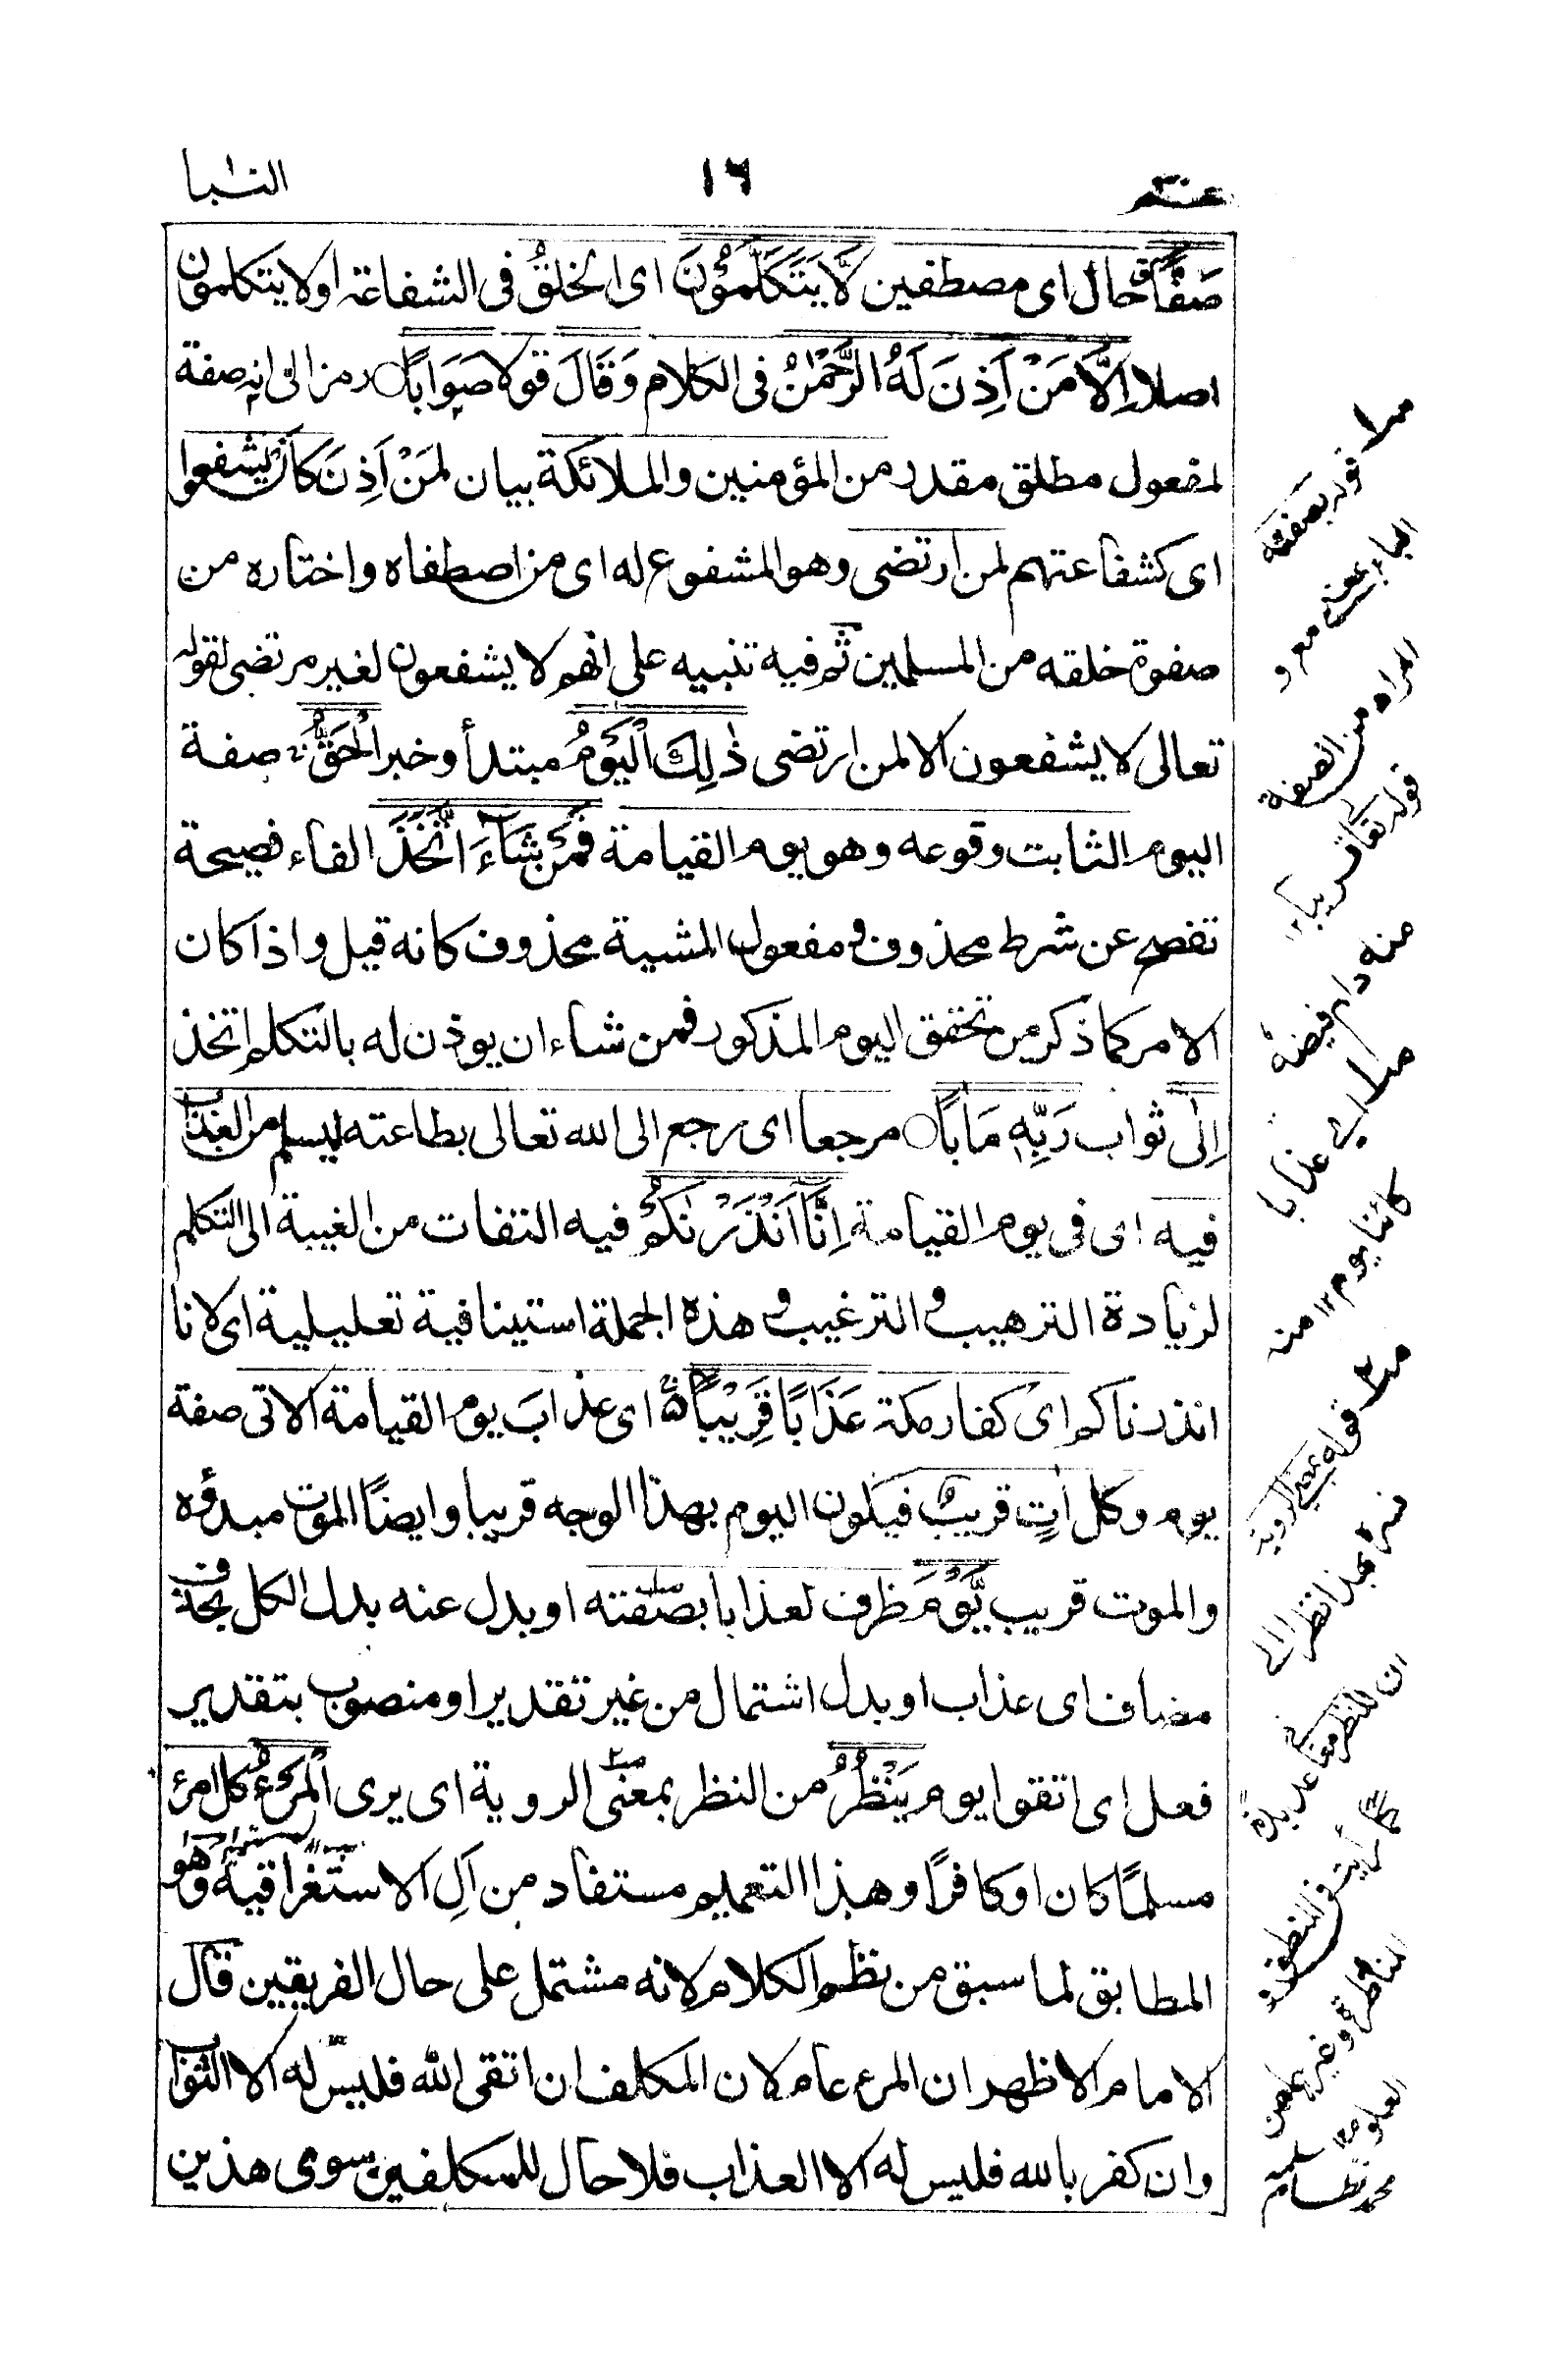 عم ٣٠
١٦
النبا
صَفًّا حال اى مصطفين لَّا يَتَكَلَّمُوْنَ اى الخلقُ فى الشفاعة او لا يتكلمون
اصلا اِلَّا مَنْ اَذِنَ لَهُ الرَّحْمٰنُ فى الكلام وَقَالَ قولا صَوَابًا رمز الى انه صفة
لمفعول مطلق مقدر من المؤمنين والملائكة بيان لمَنْ اَذِنَ كَاَنْ يشفعوا
اى كشفاعتهم لمن ارتضى وهو المشفوع له اى من اصطفاه واختاره من
صفوة خلقه من المسلمين ثم فيه تنبيه على انهم لا يشفعون لغير مرتضى لقوله
تعالى لا يشفعون الا لمن ارتضى ذٰلِكَ الْيَوْمُ مبتدأ وخبر الْحَقُّ صفة
اليوم الثابت وقوعه وهو يوم القيامة فَمَنْ شَآءَ اتَّخَذَ الفاء فصيحة
تفصح عن شرط محذوف ومفعول المشية محذوف كانه قيل واذا كان
الامر كما ذكر من تحقق اليوم المذكور فمن شاء ان يوذن له بالتكلم اتخذ
اِلٰى ثواب رَبِّهٖ مَاٰبًا مرجعا اى يرجع الى الله تعالى بطاعته ليسلم من العذاب
فيه اى فى يوم القيامة اِنَّآ اَنْذَرْنٰكُمْ فيه التفات من الغيبة الى التكلم
لزيادة الترهيب والترغيب وهذه الجملة استينافية تعليلية اى لانا
انذرناكم اى كفار مكة عَذَابًا قَرِيْبًا اى عذابَ يوم القيامة الاتى صفة
يوم وكل اٰتٍ قريبٌ فيكون اليوم بهذا الوجه قريبا وايضًا الموت مبدؤه
والموت قريب يَّوْمَ ظرف لعذابا بصفته او بدل عنه بدل الكل بحذف
مضاف اى عذاب او بدل اشتمال من غير تقدير او منصوب بتقدير
فعل اى اتقوا يوم يَنْظُرُ من النظر بمعنى الروية اى يرى الْمَرْءُ كل امرئ
مسلمًا كان او كافرًا وهذا التعميم مستفاد من اَلِ الاستغراقية وهو
المطابق لما سبق من نظم الكلام لانه مشتمل على حال الفريقين قال
الامام الاظهر ان المرء عام لان المكلف ان اتقى الله فليس له الا الثواب
وان كفر بالله فليس له الا العذاب فلا حال للمكلفين سوى هذين
قوله بصفته
الباء بمعنى مع و
المراد من الصفة
قوله تعالى قريبا
منه دام فيضه
اى عذابا
كائنا يوم ١٢ منه
قوله بمعنى الروية
ان للنظر معا عديدة
المناظرة وغيرها من